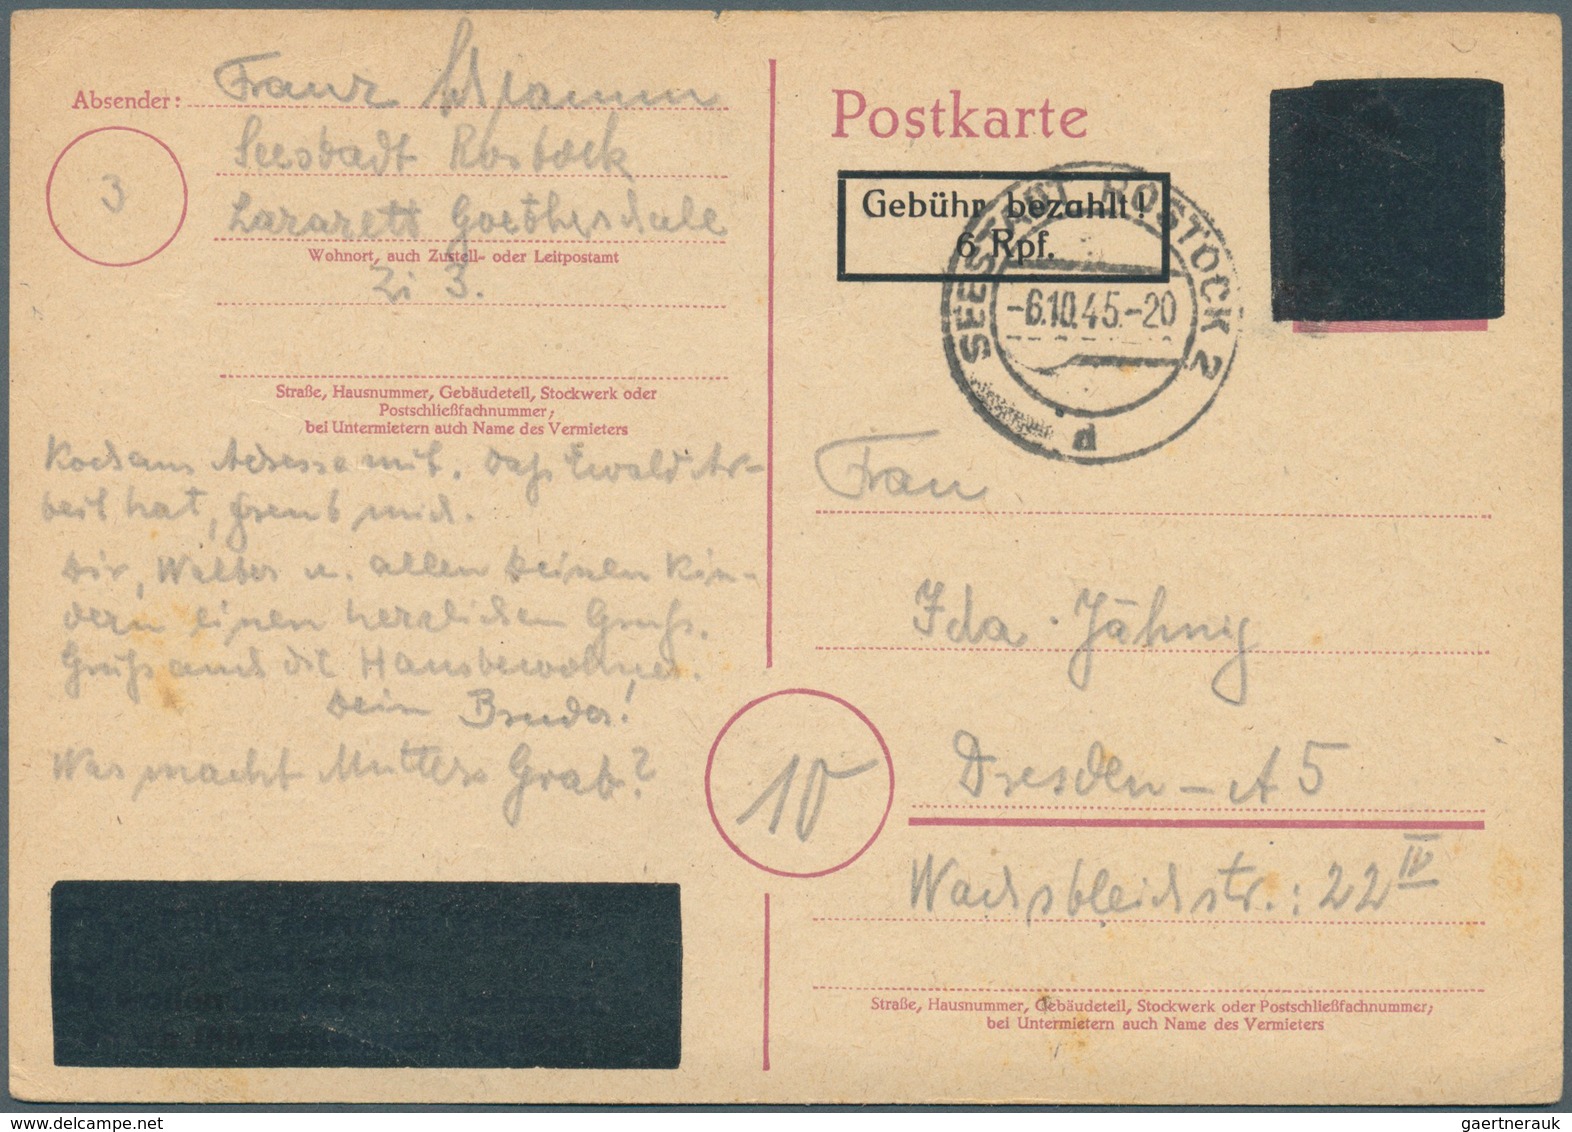 Absender: Franz Schramm
Seestadt Rostock
3
Lazarett Goetheschule
Wohnort, auch Zustell- oder Leitpostamt
Zi 3.
Straße, Hausnummer, Gebäudeteil, Stockwerk oder
Postschließfachnummer;
bei Untermietern auch Name des Vermieters
Adresse mit. Daß Ewald Ar-
beit hat, freut mich.
Dir, Walter u. allen Deinen Kin-
dern einen herzlichen Gruß.
Grüß auch die Hausbewohner.
Dein Bruder!
Was macht Mutters Grab?
Postkarte
Gebühr bezahlt!
6 Rpf.
SEESTADT ROSTOCK 2
-6.10.45.-20
d
Frau
Ida Jähnig
10
Dresden-A 5
Wachsbleichstr.: 22 IV
Straße, Hausnummer, Gebäudeteil, Stockwerk oder Postschließfachnummer;
bei Untermietern auch Name des Vermieters
gaertnerauk